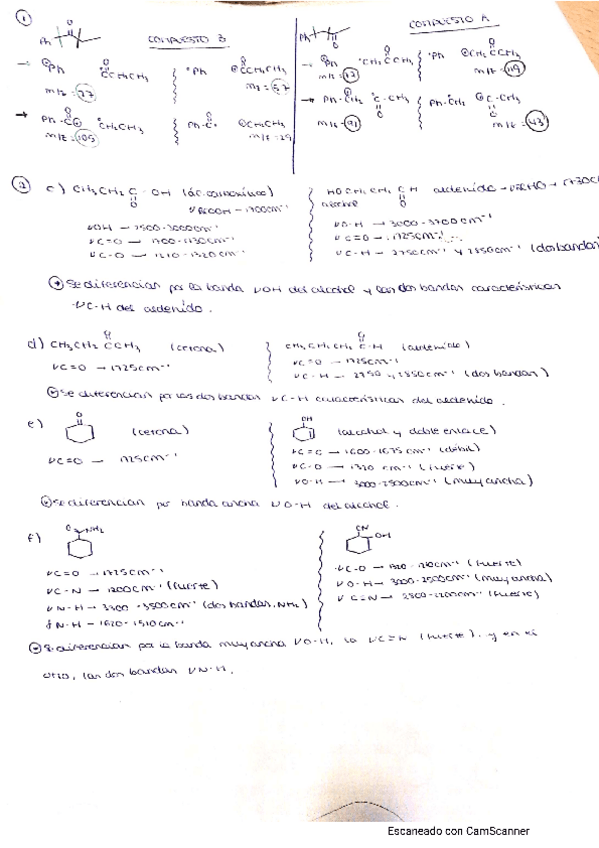 ① Ph COMPUESTO B
Ph COMPUESTO A
→ ⊕Ph CCH₂CH₃ •Ph ⊕CCH₂CH₃
m/z = 77 m/z = 57
→ Ph-C⊕ CH₂CH₃ Ph-C• ⊕CH₂CH₃
m/z = 105 m/z = 29
→ ⊕Ph •CH₂CCH₃ •Ph ⊕CH₂CCH₃
m/z = 77 m/z = 119
→ Ph-CH₂ C-CH₃ Ph-CH₂ ⊕C-CH₃
O O
m/z = 91 m/z = 43
② c) CH₃CH₂ C-OH (ác. carboxílico)
O
νOH → 2500-3000cm⁻¹
νC=O → 1700-1730cm⁻¹
νC-O → 1210-1320cm⁻¹
HOCH₂CH₂ CH aldehido
O
νO-H →
νC=O → 1725cm⁻¹
νC-H → 2750cm⁻¹ y 2850cm⁻¹ (dos bandas)
Se diferencian por la banda νOH del alcohol y las dos bandas características
νC-H del aldehido.
d) CH₃CH₂CCH₃ (cetona)
O
νC=O → 1725cm⁻¹
CH₃CH₂CH₂C-H (aldehido)
O
νC=O → 1725cm⁻¹
νC-H → 2750 y 2850cm⁻¹ (dos bandas)
Se diferencian por las dos bandas νC-H características del aldehido.
e) O (cetona)
νC=O → 1725cm⁻¹
OH (alcohol y doble enlace)
νC=C → 1600-1675cm⁻¹ (débil)
νC-O → 1320 cm⁻¹ (fuerte)
νO-H → 3000-2500cm⁻¹ (muy ancha)
Se diferencian por banda ancha νO-H del alcohol.
f) O NH₂
νC=O → 1725cm⁻¹
νC-N → 1200cm⁻¹ (fuerte)
νN-H → 3300-3500cm⁻¹ (dos bandas, NH₂)
δN-H → 1620-1510cm⁻¹
CN OH
νC-O → (fuerte)
νO-H → 3000-2500cm⁻¹ (muy ancha)
νC≡N → (fuerte)
Se diferencian por la banda muy ancha νO-H, la νC≡N (fuerte) y en el
otro, las dos bandas νN-H.
Escaneado con CamScanner